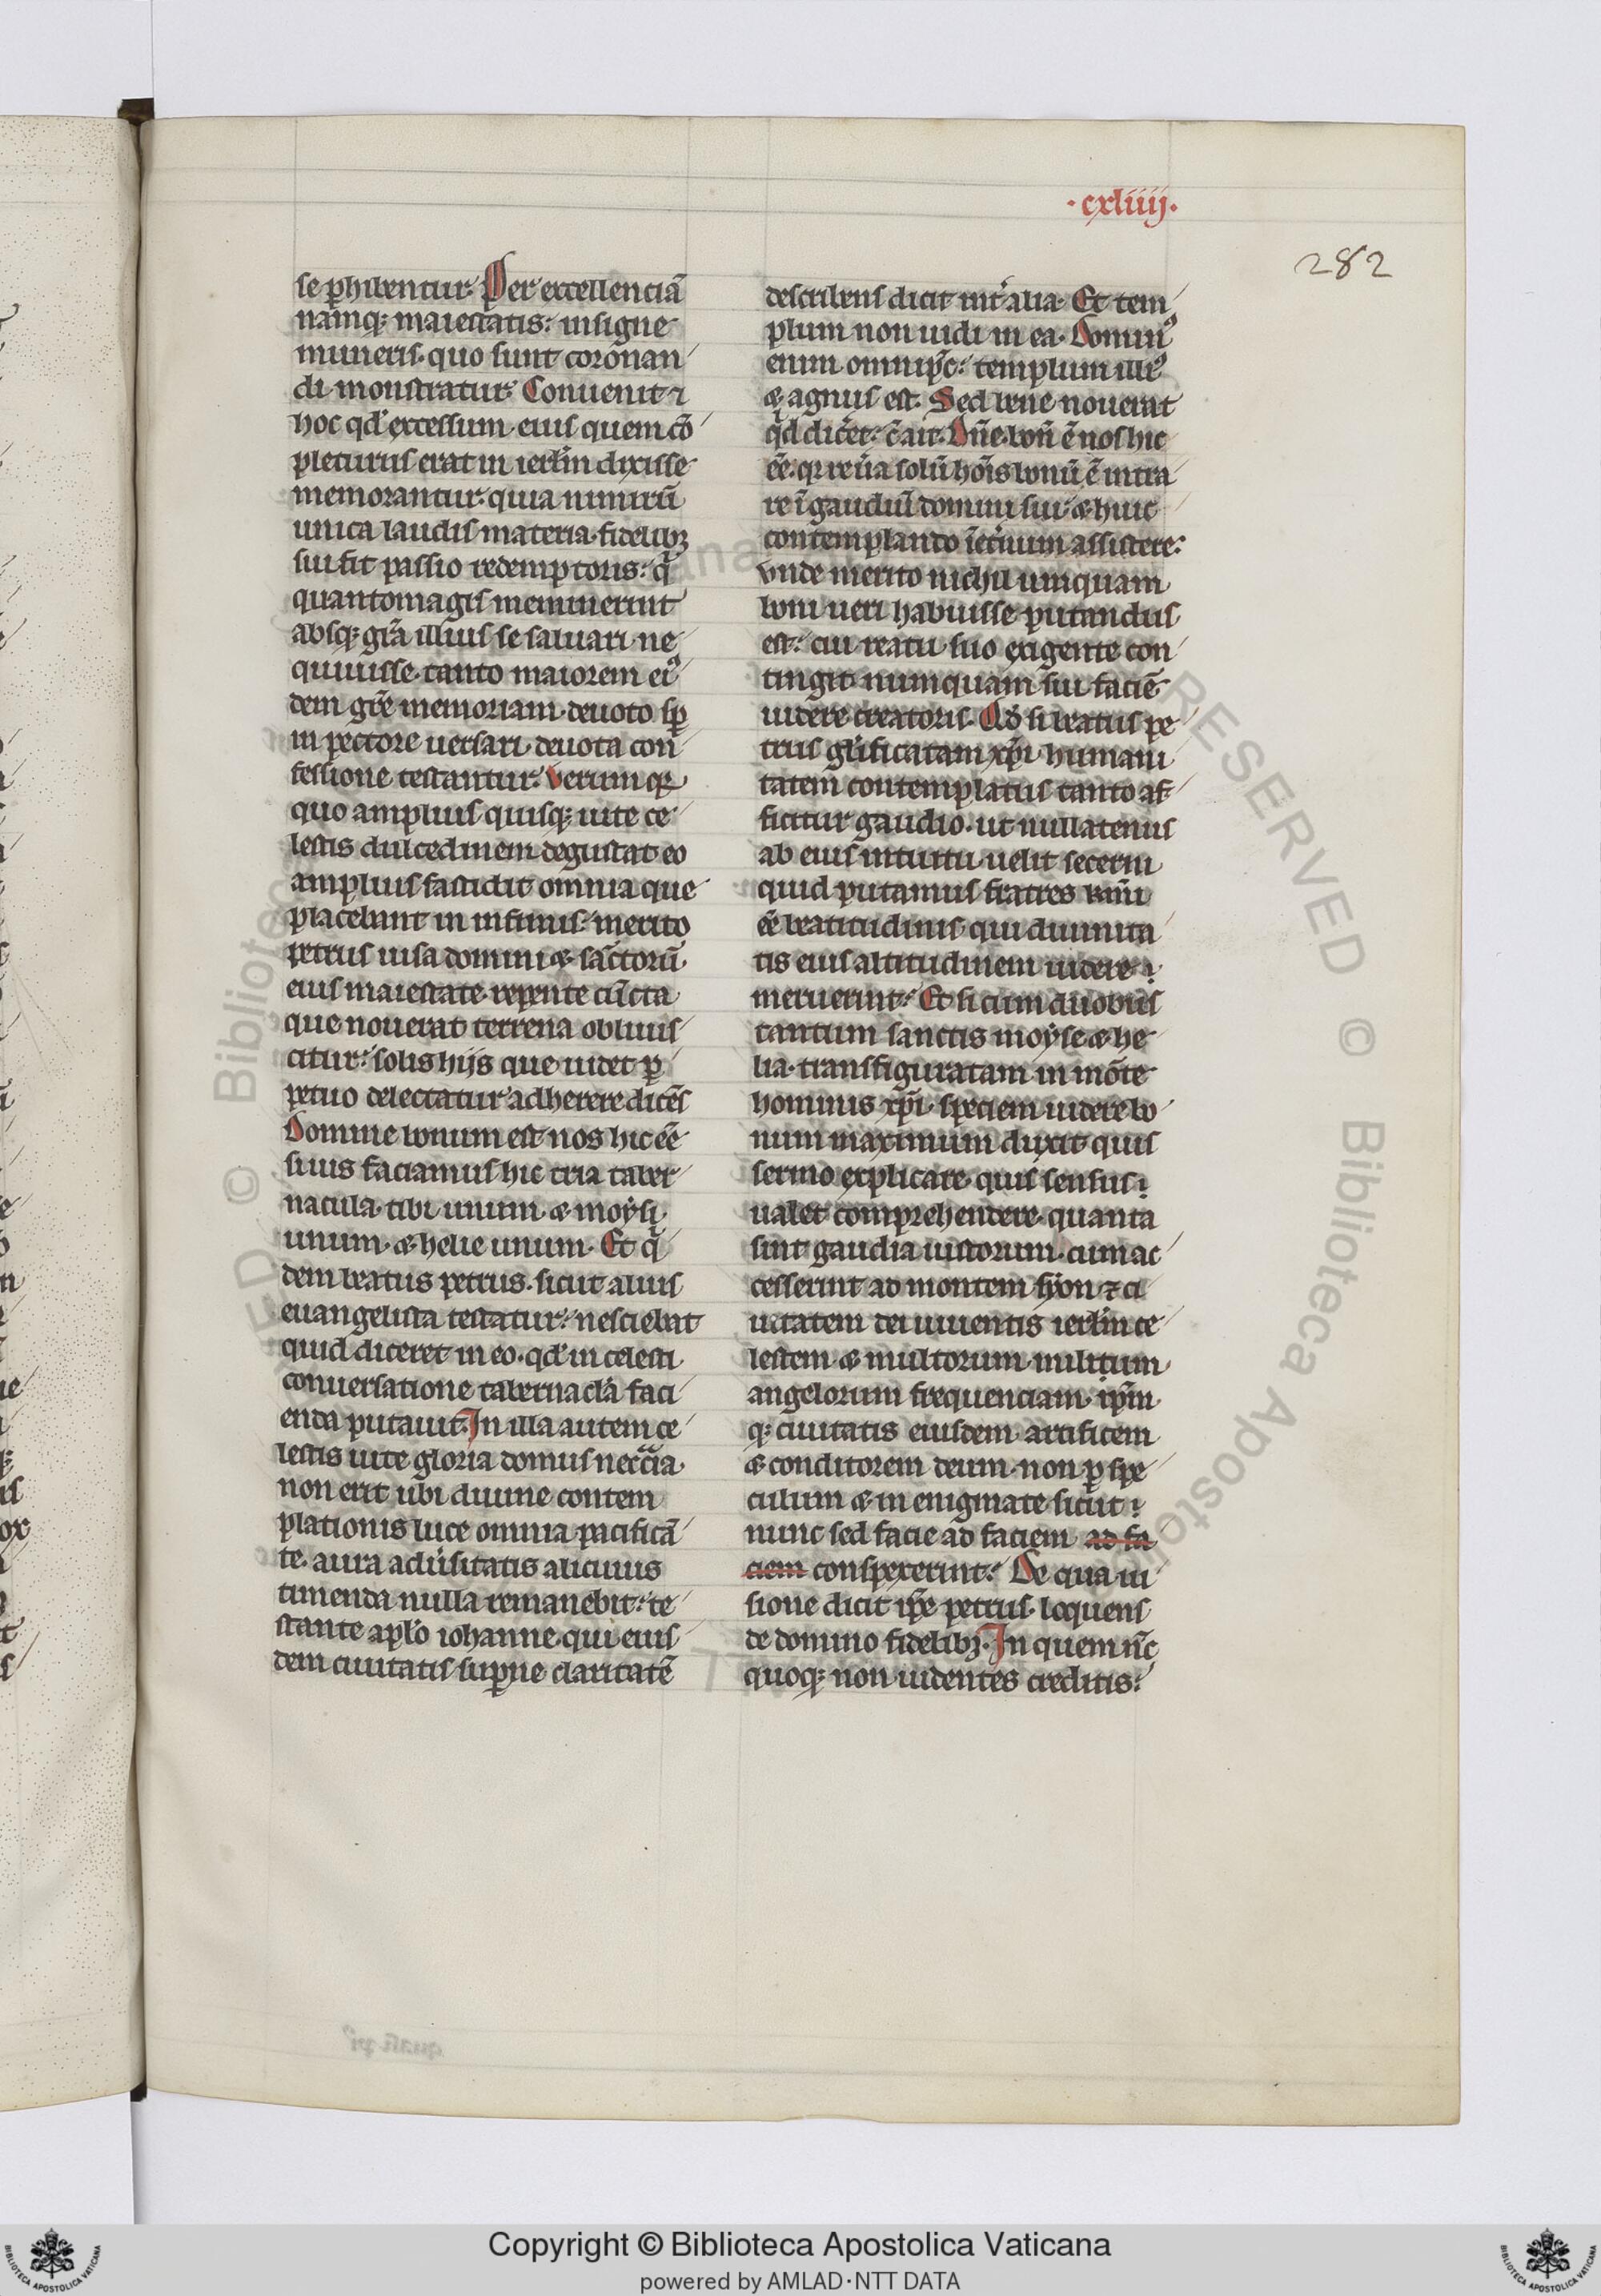 ·cxliiij·
282
se ꝑhibentur. Per excellenciã
namq; maiestatis: insigne
muneris. quo sunt coronan
di monstratur. Conuenit ⁊
hoc qd' excessum eius quem cõ
pleturus erat in ierl'm dixisse
memorantur. quia nimirũ
unica laudis materia fidelibꝫ
sui fit passio redemptoris: q̃
quantomagis meminerint
absq; gr̃a illius se saluari ne
quiuisse. tanto maiorem eiꝰ
dem gr̃e memoriam deuoto sꝑ
in pectore uersari deuota con
fessione testantur. Verum qr
quo amplius quisq; uite ce
lestis dulcedinem degustat eo
amplius fastidit omnia que
placebant in infimis: merito
petrus uisa domini & sãctorũ
eius maiestate. repente cũcta
que nouerat terrena obliuis
citur: solis hijs que uidet ꝑ
petuo delectatur adherere dicẽs
Domine bonum est nos hic eẽ
si uis faciamus hic tria taber
nacula. tibi unum & moysi
unum. & helie unum. Et q̃
dem beatus petrus. sicut alius
euangelista testatur: nesciebat
quid diceret in eo. qd' in celesti
conuersatione tabernacl'a faci
enda putauit. In illa autem ce
lestis uite gloria domus nec̃cia
non erit ubi diuine contem
plationis luce omnia pacificã
te. aura adũsitatis alicuius
timenda nulla remanebit: te
stante apl'o iohanne. qui eius
dem ciuitatis suꝑne claritatẽ
describens dicit int' alia. Et tem
plum non uidi in ea. Dominꝰ
enim omnip̃c: templum illiꝰ
& agnus est. Sed bene nouerat
qd dic̃et: c̃ ait. Dñe. bon̄ ẽ nos hic
eẽ. qr reũa solũ hoĩs bonũ ẽ intra
re ĩ gaudiũ domini sui & huic
contemplando ĩet'num assistere:
vnde merito nichil umquam
boni ueri habuisse putandus
est: cui reatu suo exigente con
tingit numquam sui faciẽ
uidere creatoris. Qd' si beatus pe
trus gl'ificatam xp̃i humani
tatem contemplatus tanto af
ficitur gaudio. ut nullatenus
ab eius intuitu uelit secerni
quid putamus fratres kmĩ
eẽ beatitudinis qui diuinita
tis eius altitudinem uidere
meruerint: Et si cum duobus
tantum sanctis moyse & he
lia. transfiguratam in mõte
hominis xp̃i. speciem uidere bo
num maximum duxit quis
sermo explicare. quis sensus
ualet comprehendere. quanta
sint gaudia iustorum. cum ac
cesserint ad montem syon ⁊ ci
uitatem dei uiuentis ierl'm ce
lestem & multorum militum
angelorum frequenciam. ip̃m
q; ciuitatis eiusdem artificem
& conditorem deum. non ꝑ spe
culum & in enigmate sicut
nunc sed facie ad faciem ad fa
ciem conspexerint: De qua ui
sione dicit ip̃e petrus. loquens
de domino fidelibꝫ. In quem nc̃
quoq; non uidentes creditis:
Copyright © Biblioteca Apostolica Vaticana
powered by AMLAD·NTT DATA